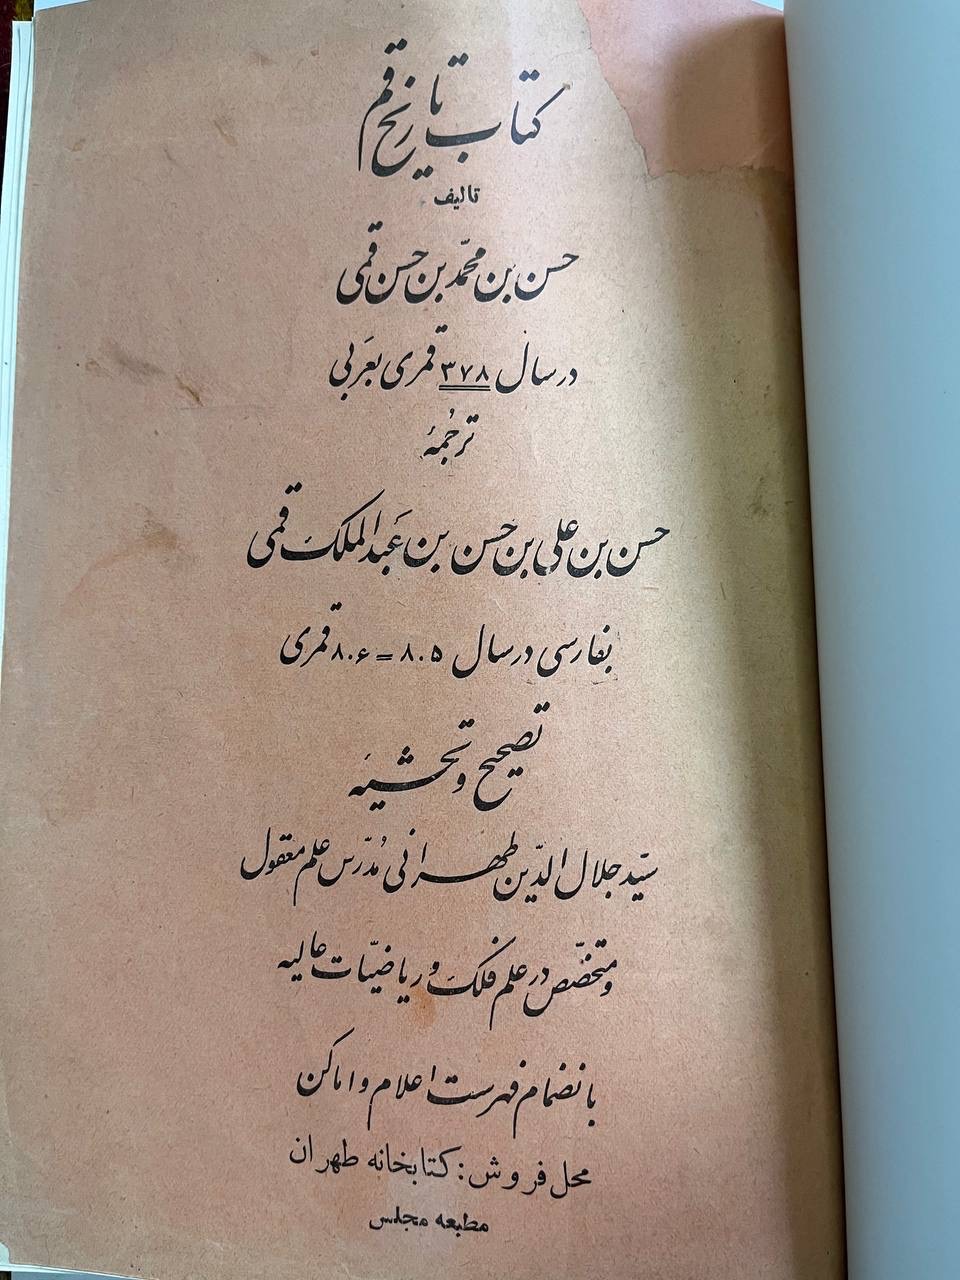 کتاب تاریخ قم
تالیف
حسن بن محمّد بن حسن قمی
در سال ۳۷۸ قمری بعَربی
ترجُمهٔ
حسن بن علی بن حَسن بن عَبدالملک قمی
بفارسی در سال ۸۰۵ = ۸۰۶ قمری
تصحیح و تحشیهٔ
سیّد جلال الدّین طهرانی مُدَرّس علم معقول
و متخصّص در علم فلک و ریاضیّات عالیه
بانضمام فهرست اعلام و اماکن
محل فروش: کتابخانه طهران
مطبعه مجلس